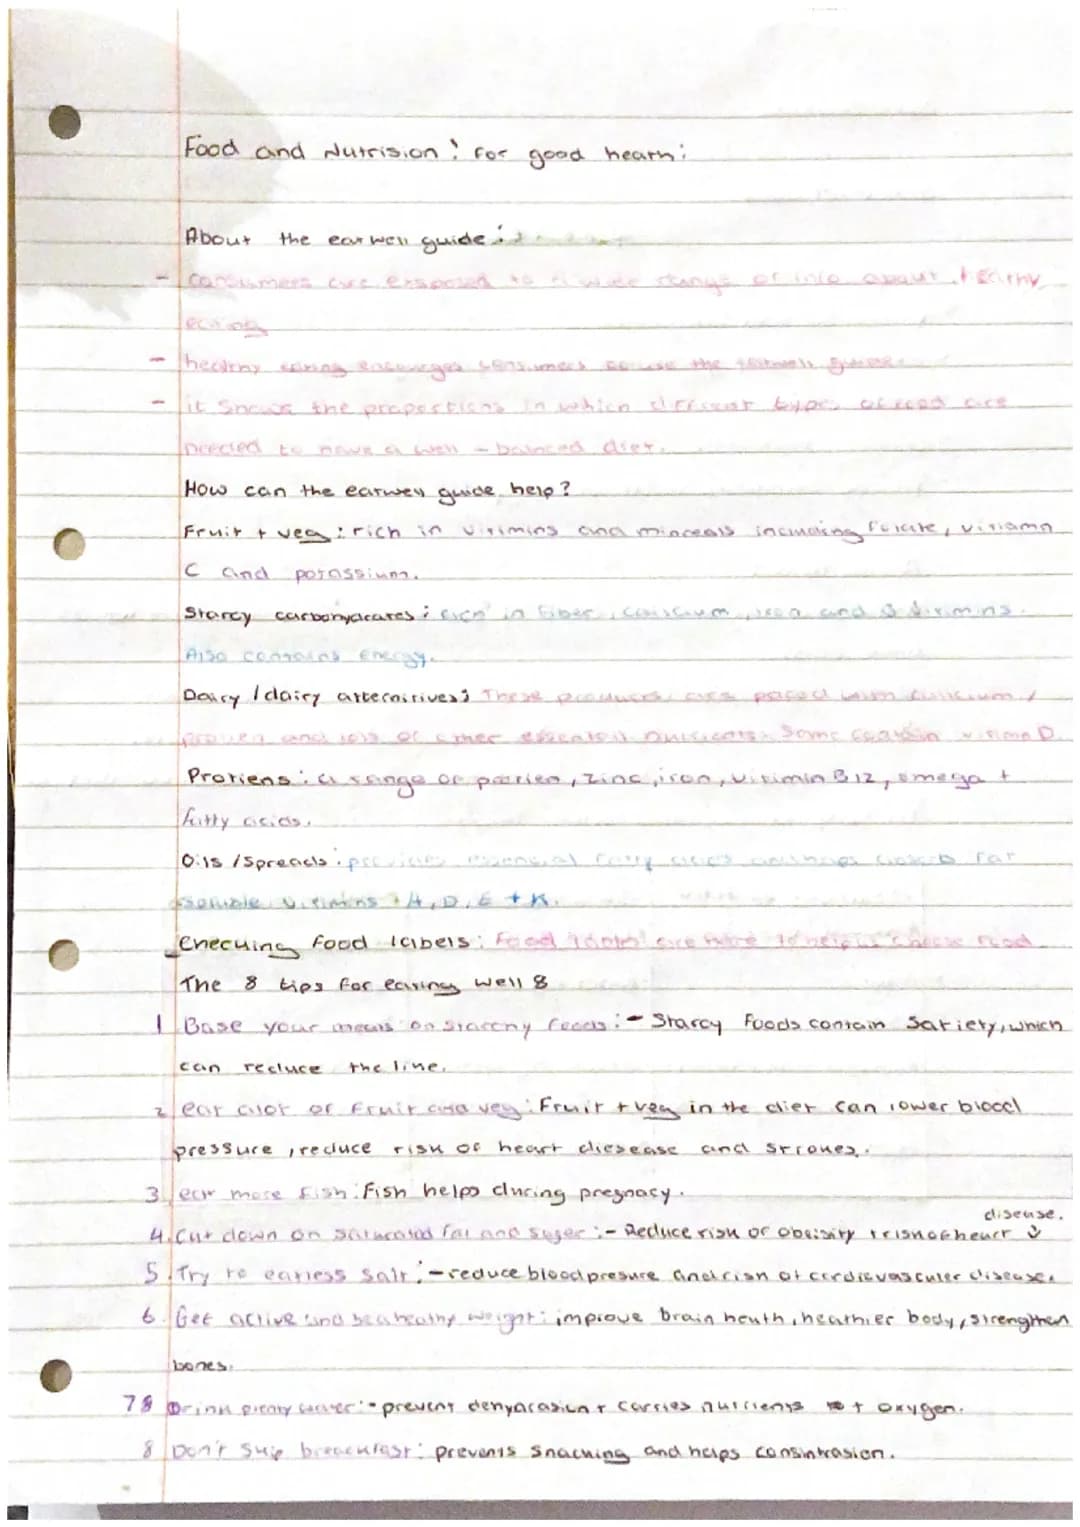 Food and Nutrision : For good hearh :
About the earwell guide :
- consumers are exposed to a wide range of info about healthy
eating
- healthy earing encourges consumers to use the earwell guide.
- it shows the proportions in which different types of food are
needed to have a well - balnced diet.
How can the earwell guide help?
Fruit + veg : rich in virimins and minreals including folate, viriamn
C and porassium.
Starcy carbonyarares : rich in fiber, caliscium, iron and B virimins.
Also contains energy.
Dairy / dairy arternirives : These products are paced with calicium,
protien and lots of other essential nutrients. Some contain virimn D.
Proriens : a range of prorien, zinc, iron, virimin B12, omega +
fatty acids.
Oils / Spreads : provides essencial fatty acids and helps absorb far
soluble virimins : A, D, E + K.
Checuing food labels : Food labels are here to help us choose food
The 8 tips for earing well 8
1 Base your meals on starchy foods :- Starcy foods contain satiety, which
can recluce the line.
2 ear alot of fruit and veg : Fruit + veg in the diet can lower blood
pressure, reduce risk of heart diesease and srrokes.
3. ear more fish : Fish helps during pregnacy.
4. Cut down on saturated fat and suger :- Reduce risk of obeisity + risk of heart disease.
5. Try to earless salt :- reduce blood presure and risn of cardiovasculer disease.
6. Get active and be a healthy weight : improve brain heath, heathier body, strengthen
bones.
7 Drink plenty water :- prevent denyarasiun + carries nutrients + oxygen.
8 Don't skip breackfast : prevents snacking and helps consintrasion.